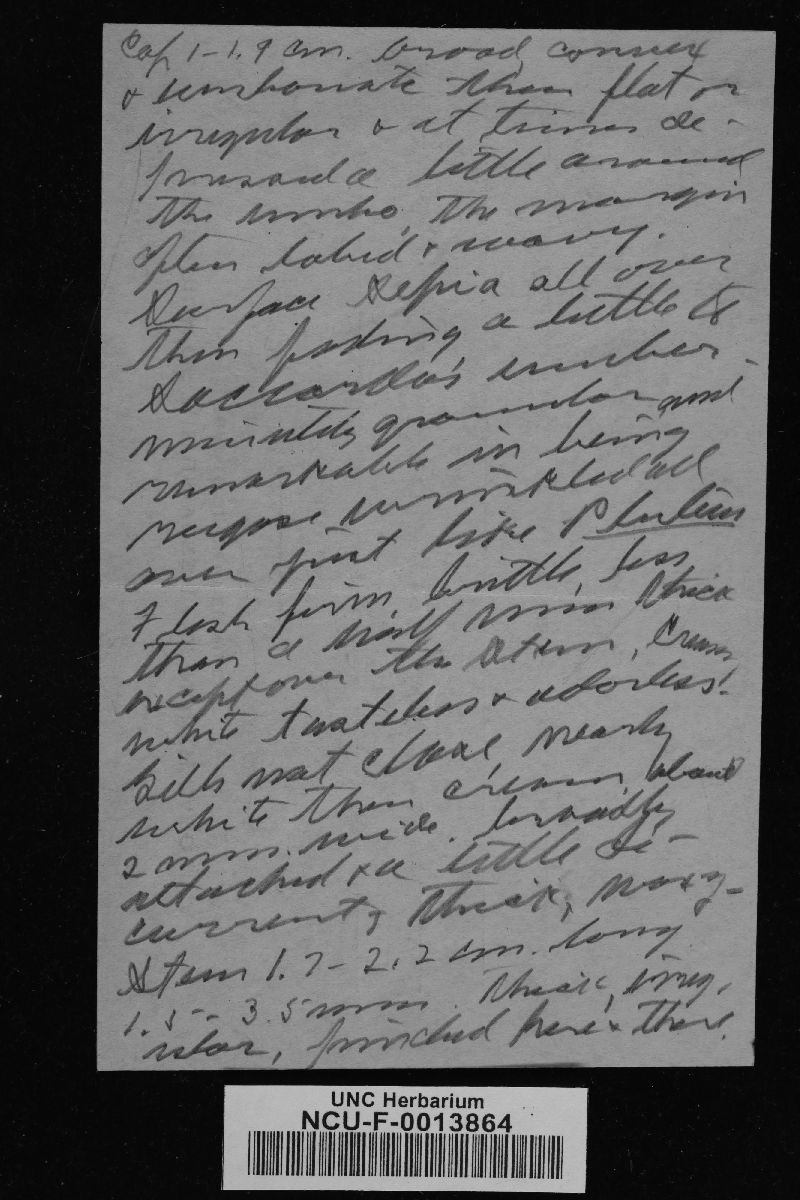 Cap 1-1.9 cm. broad, convex
& umbonate then flat or
irregular & at times de-
pressed a little around
the umbo, the margin
often lobed & wavy.
Surface sepia all over
then fading a little to
Saccardo's umber.
minutely granular and
remarkable in being
rugose wrinkled all
over just like Pluteus
Flesh firm, brittle, less
than a half mm. thick
except over the stem, cream
white tasteless & odorless.
Gills not close, nearly
white then cream, about
2 mm. wide. broadly
attached & a little de-
current, thick, waxy-
Stem 1.7-2.2 cm. long
1.5-3.5 mm. thick, irreg-
ular, pinched here & there.
UNC Herbarium
NCU-F-0013864